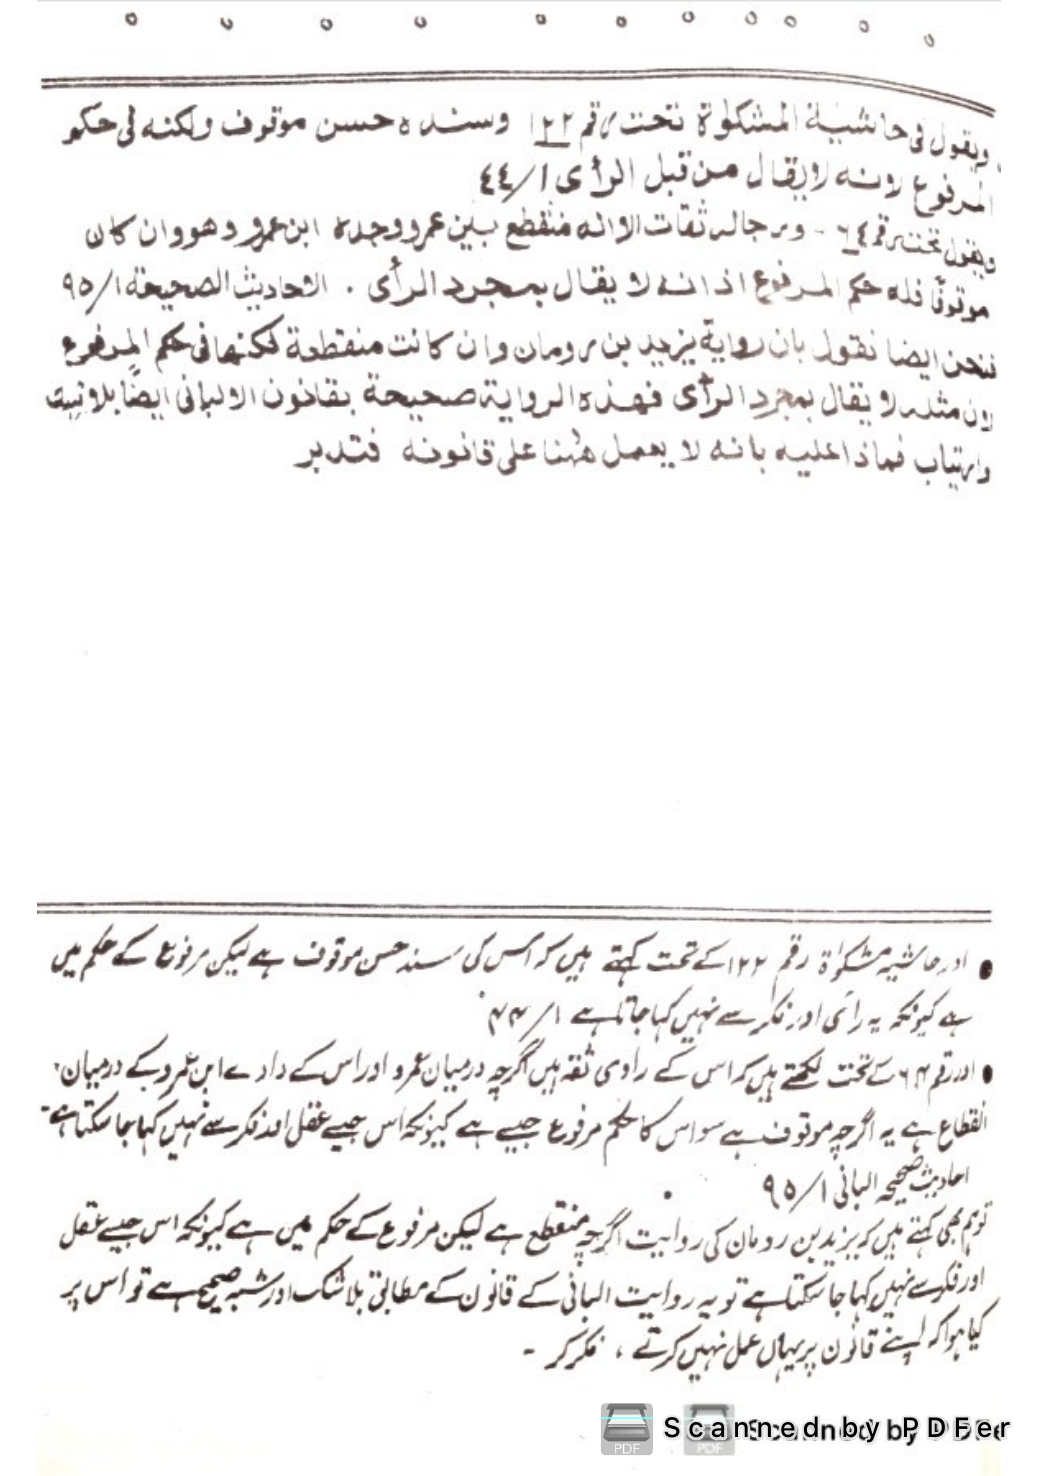 ويقول فى حاشية المشكوٰة تحت رقم ١٢٢ وسنده حسن موقوف ولكنه فى حكم
المرفوع لانه لا يقال من قبل الرأى ٤٤/١
ويقول تحت رقم ٦٤ - ورجاله ثقات الا انه منقطع بين عمرو وجده ابن عمرو وهو وان كان
موقوفًا فله حكم المرفوع اذ انه لا يقال بمجرد الرأى . الاحاديث الصحيحة ٩٥/١
فنحن ايضا نقول بان رواية يزيد بن رومان وان كانت منقطعة لكنها فى حكم المرفوع
لان مثله لا يقال بمجرد الرأى فهذه الرواية صحيحة بقانون الالبانى ايضًا بلا
وارتياب فماذا عليه بانه لا يعمل ههنا على قانونه فتدبر
● اور حاشیہ مشکوٰة رقم ۱۲۲ کے تحت کہتے ہیں کہ اس کی سند حسن موقوف ہے لیکن مرفوع کے حکم میں
ہے کیونکہ یہ رائی اور فکر سے نہیں کہا جاتا ہے ۴۴/۱
● اور رقم ۶۴ کے تحت لکھتے ہیں کہ اس کے راوی ثقہ ہیں اگرچہ درمیان عمرو اور اس کے دادے ابن عمرو کے درمیان
انقطاع ہے یہ اگرچہ موقوف ہے سو اس کا حکم مرفوع جیسے ہے کیونکہ اس جیسے عقل اور فکر سے نہیں کہا جا سکتا ہے۔
احادیث صحیحہ البانی ۹۵/۱
تو ہم بھی کہتے ہیں کہ یزید بن رومان کی روایت اگرچہ منقطع ہے لیکن مرفوع کے حکم میں ہے کیونکہ اس جیسے عقل
اور فکر سے نہیں کہا جا سکتا ہے تو یہ روایت البانی کے قانون کے مطابق بلا شک اور شبہ صحیح ہے تو اس پر
کیا ہوا کہ اپنے قانون پر یہاں عمل نہیں کرتے ، فکر کر ۔
Scanned by PDFer
Scanned by PDFe